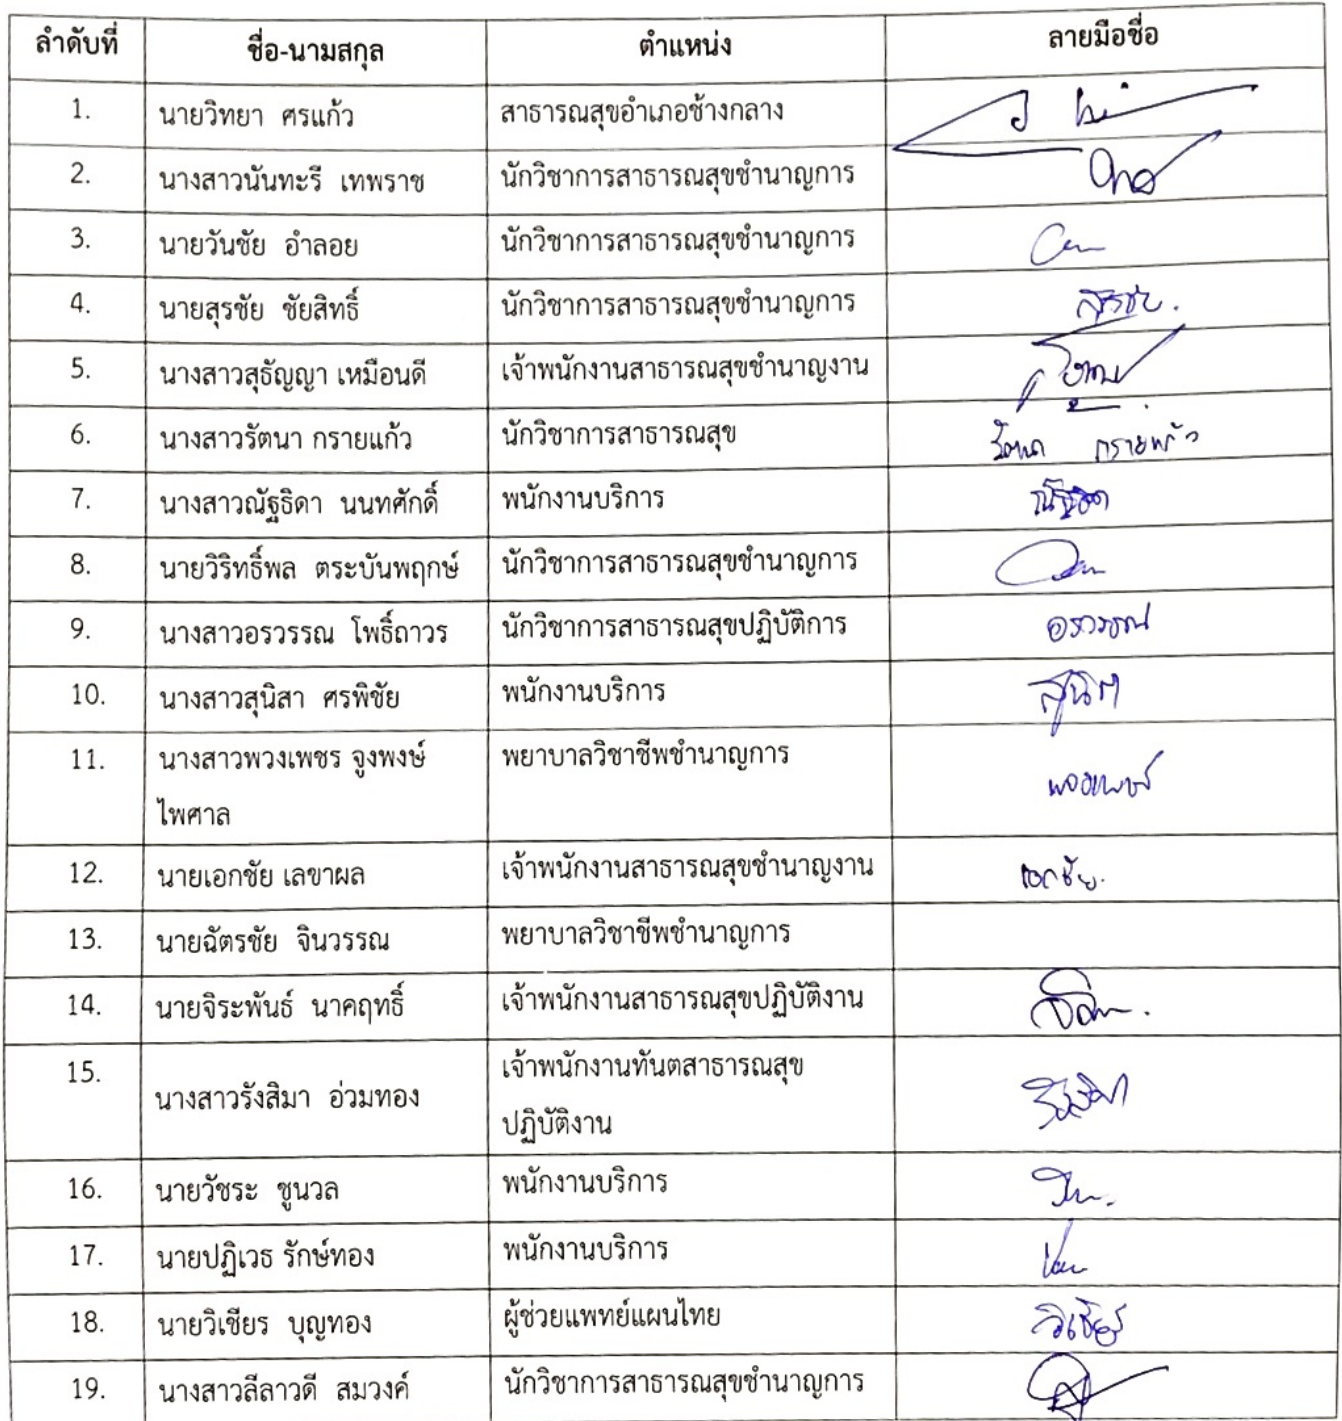 ลำดับที่ ชื่อ-นามสกุล ตำแหน่ง ลายมือชื่อ
1. นายวิทยา ศรแก้ว สาธารณสุขอำเภอช้างกลาง
2. นางสาวนันทะรี เทพราช นักวิชาการสาธารณสุขชำนาญการ
3. นายวันชัย อำลอย นักวิชาการสาธารณสุขชำนาญการ
4. นายสุรชัย ชัยสิทธิ์ นักวิชาการสาธารณสุขชำนาญการ สุรชัย.
5. นางสาวสุธัญญา เหมือนดี เจ้าพนักงานสาธารณสุขชำนาญงาน
6. นางสาวรัตนา กรายแก้ว นักวิชาการสาธารณสุข รัตนา กรายแก้ว
7. นางสาวณัฐธิดา นนทศักดิ์ พนักงานบริการ ณัฐธิดา
8. นายวิริทธิ์พล ตระบันพฤกษ์ นักวิชาการสาธารณสุขชำนาญการ
9. นางสาวอรวรรณ โพธิ์ถาวร นักวิชาการสาธารณสุขปฏิบัติการ อรวรรณ
10. นางสาวสุนิสา ศรพิชัย พนักงานบริการ สุนิสา
11. นางสาวพวงเพชร จูงพงษ์ พยาบาลวิชาชีพชำนาญการ
ไพศาล พวงเพชร
12. นายเอกชัย เลขาผล เจ้าพนักงานสาธารณสุขชำนาญงาน เอกชัย.
13. นายฉัตรชัย จินวรรณ พยาบาลวิชาชีพชำนาญการ
14. นายจิระพันธ์ นาคฤทธิ์ เจ้าพนักงานสาธารณสุขปฏิบัติงาน
15. นางสาวรังสิมา อ่วมทอง เจ้าพนักงานทันตสาธารณสุข
ปฏิบัติงาน รังสิมา
16. นายวัชระ ชูนวล พนักงานบริการ
17. นายปฏิเวธ รักษ์ทอง พนักงานบริการ
18. นายวิเชียร บุญทอง ผู้ช่วยแพทย์แผนไทย วิเชียร
19. นางสาวลีลาวดี สมวงค์ นักวิชาการสาธารณสุขชำนาญการ